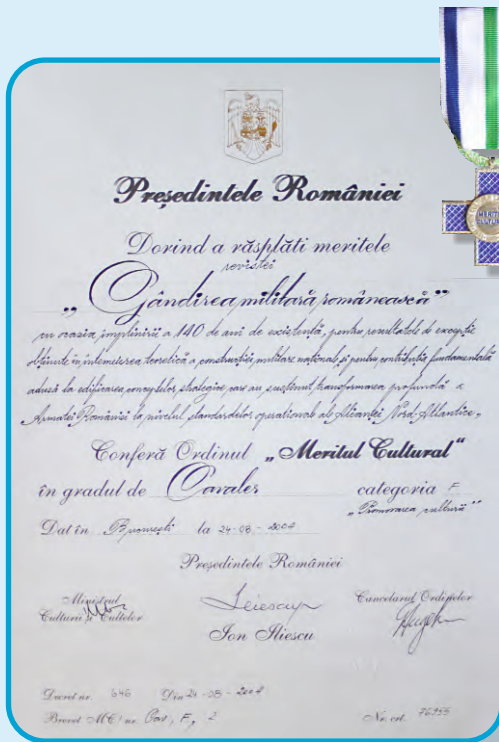 Președintele României
Dorind a răsplăti meritele
revistei
„Gândirea militară românească”
cu ocazia împlinirii a 140 de ani de existență, pentru rezultatele de excepție
obținute în întemeierea teoretică a construcției militare naționale și pentru contribuția fundamentală
adusă la edificarea conceptelor strategice care au susținut transformarea profundă a
Armatei României la nivelul standardelor operaționale ale Alianței Nord-Atlantice,
Conferă Ordinul „Meritul Cultural”
în gradul de Cavaler categoria F
„Promovarea culturii”
Dat în București la 24-08-2004
Președintele României
Ministrul Culturii și Cultelor
Cancelarul Ordinelor
Ion Iliescu
Decret nr. 646 Din 24-08-2004
Brevet MC/nr. Cav, F, 2 Nr. crt. 76955
MERITUL